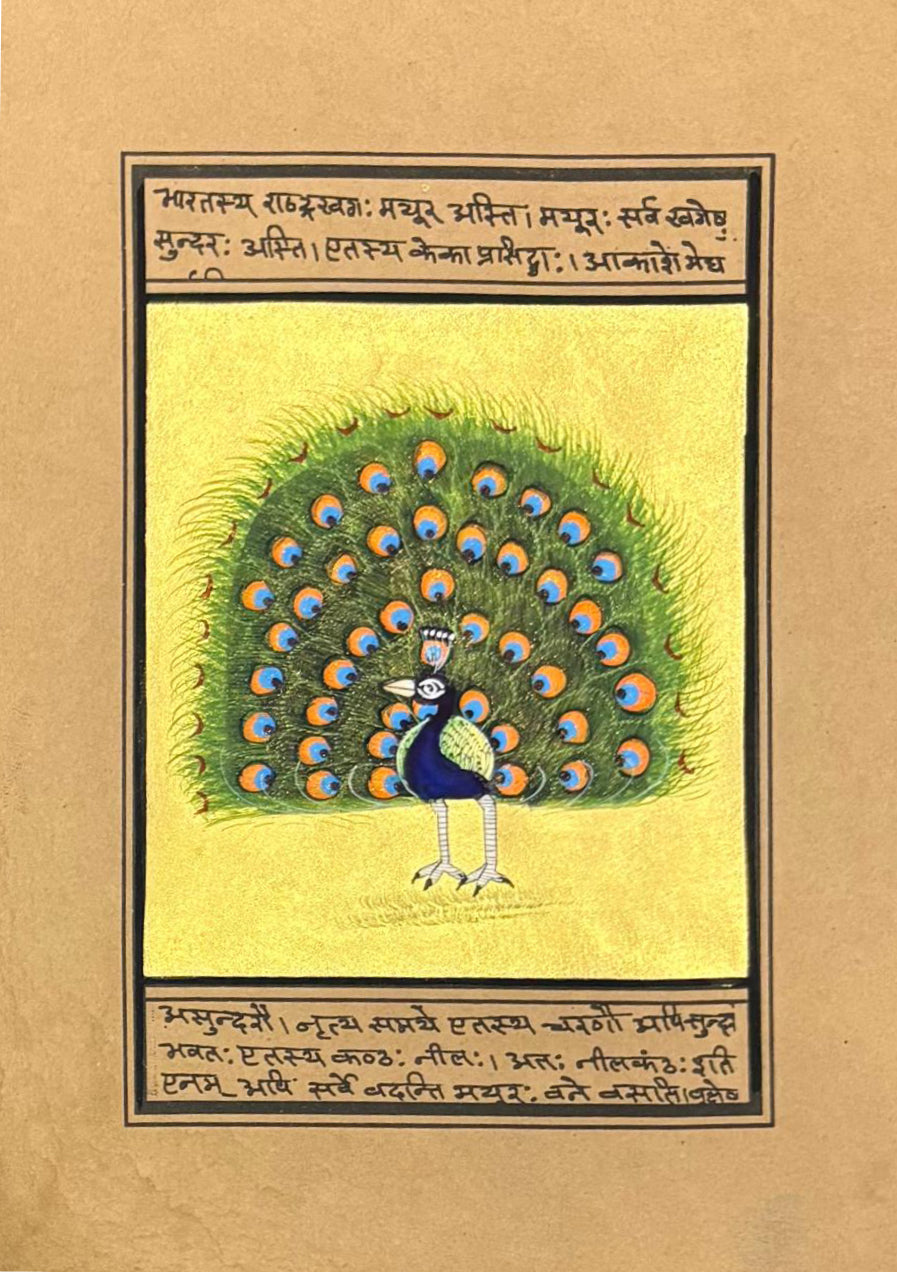 भारतस्य राष्ट्रखगः मयूर अस्ति। मयूरः सर्व खगेषु
सुन्दरः अस्ति। एतस्य केका प्रसिद्धाः। आकाशे मेघ
असुन्दरौ। नृत्य समये एतस्य चरणौ अपि
भवतः एतस्य कण्ठः नीलः। अतः नीलकंठः इति
एनम् अपि सर्वे वदन्ति मयूरः वने वसति।